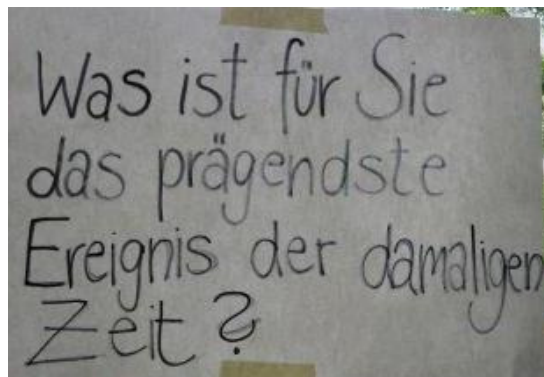 Was ist für Sie
das prägendste
Ereignis der damaligen
Zeit?